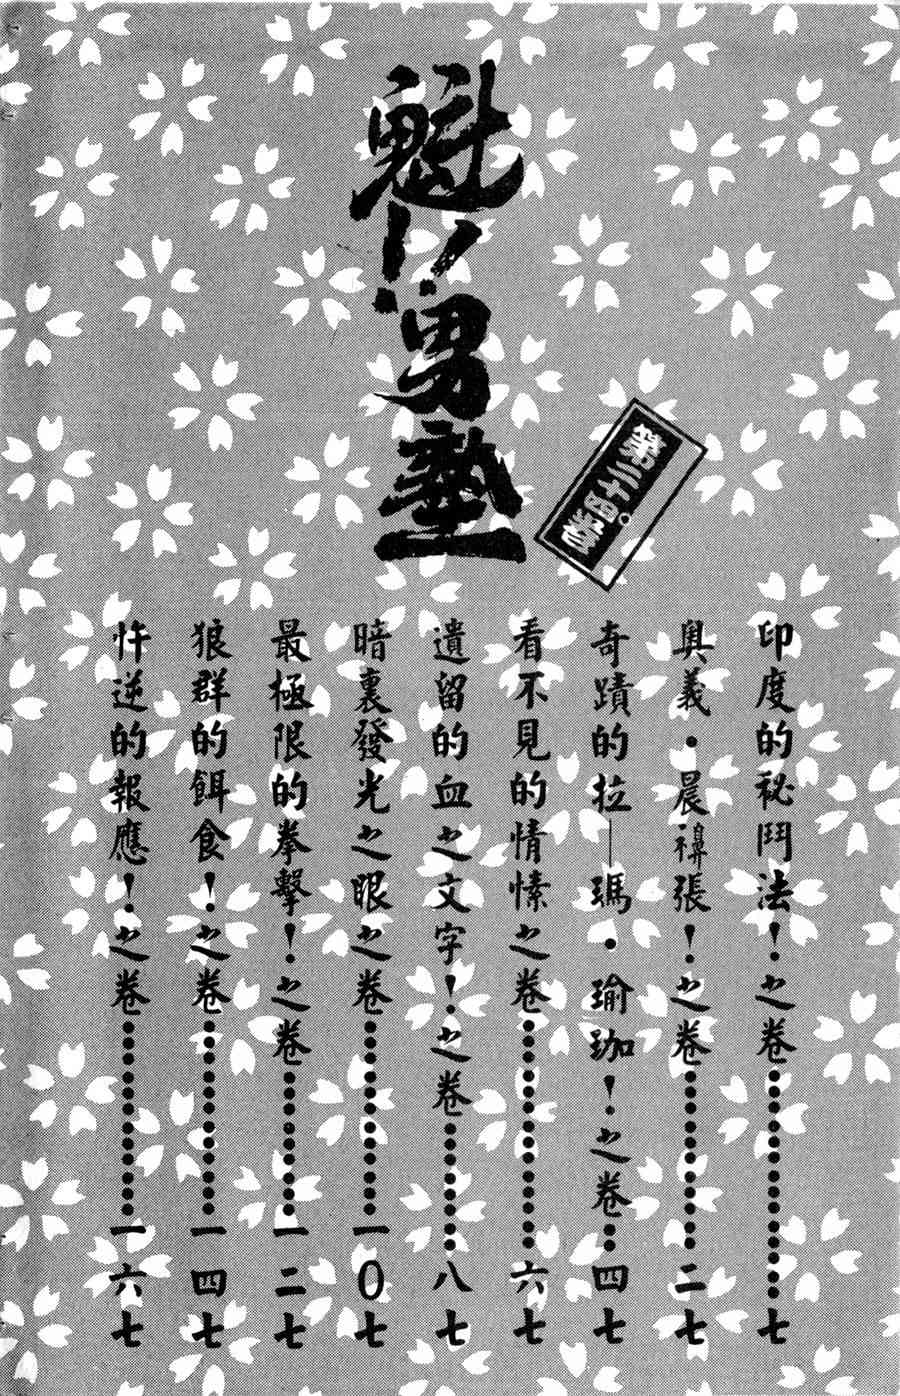 魁!!男塾
第二十四卷
印度的秘鬥法!之卷……七
奧義・晨襣張!之卷……二七
奇蹟的拉—瑪・瑜珈!之卷……四七
看不見的情愫之卷……六七
遺留的血之文字!之卷……八七
暗裏發光之眼之卷……一0七
最極限的拳擊!之卷……一二七
狼群的餌食!之卷……一四七
忤逆的報應!之卷……一六七